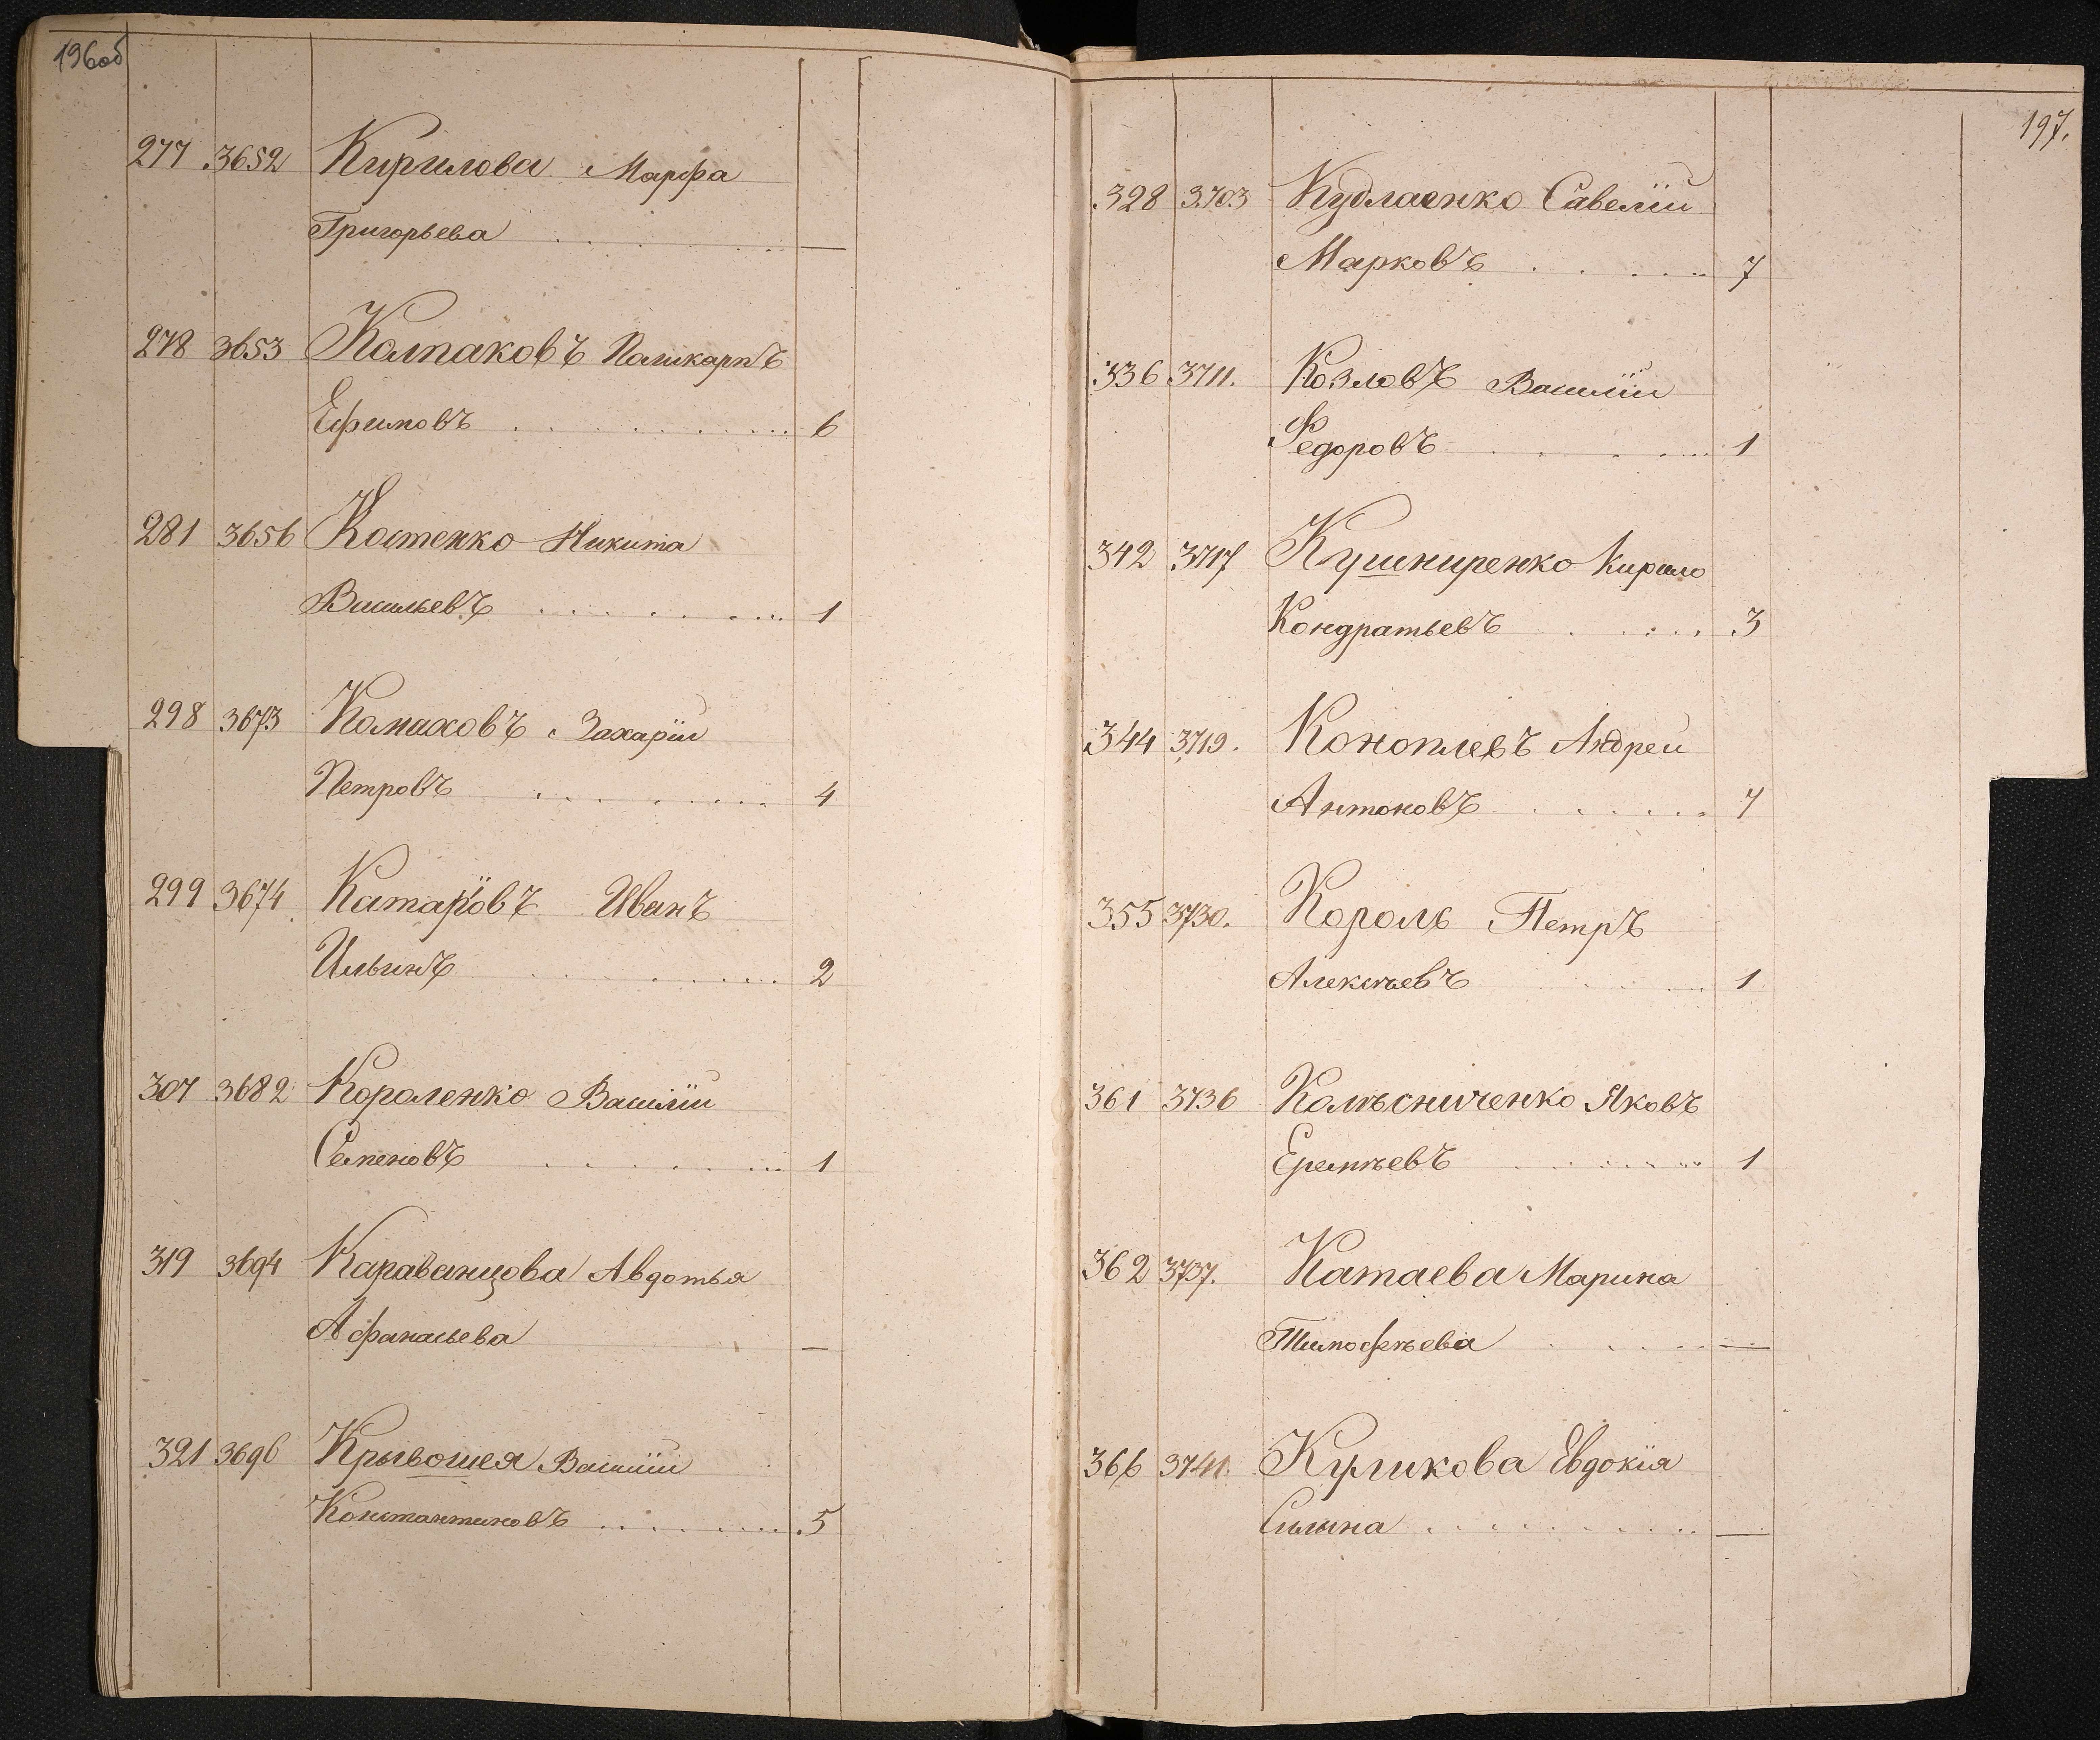 196об
277 3652 Кирилова Марфа
Григорьева . . . . . . —
278 3653 Колпаковъ Поликарпъ
Ефимовъ . . . . . . 6
281 3656 Костенко Никита
Васильевъ . . . . . . 1
298 3673 Комаховъ Захарій
Петровъ . . . . . . 4
299 3674 Иванъ
Ильинъ . . . . . . 2
307 3682 Короленко Василій
Семеновъ . . . . . . 1
319 3694 Караванцова Авдотья
Афанасьева —
321 3696 Крывошея Василій
Константиновъ . . . . . . 5
197.
328 3703 Кудлаенко Савелій
Марковъ . . . . . 7
336 3711. Козловъ Василій
Федоровъ . . . . . 1
342 3717 Кушниренко Кирило
Кондратьевъ . . . . . 3
344 3719. Коноплевъ Андрей
Антоновъ . . . . . 7
355 3730. Король Петръ
Алексѣевъ . . . . . 1
361 3736 Колѣсниченко Яковъ
Еремѣевъ . . . . . 1
362 3737. Катаева Марина
Тимофѣева . . . . . —
366 3741. Куликова Евдокія
Силина . . . . . . —